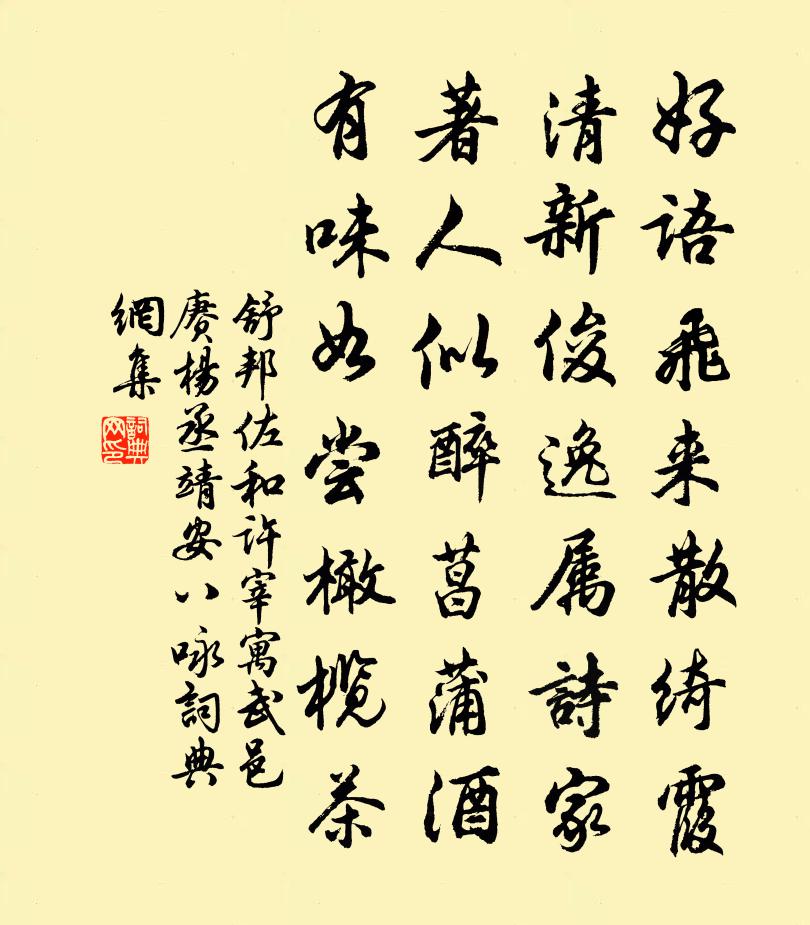 好語飛来散綺霞
清新俊逸属詩家
著人似醉菖蒲酒
有味如尝橄榄茶
舒邦佐和许宰寓武邑
賡楊丞靖安八咏詞典
網集
詞典